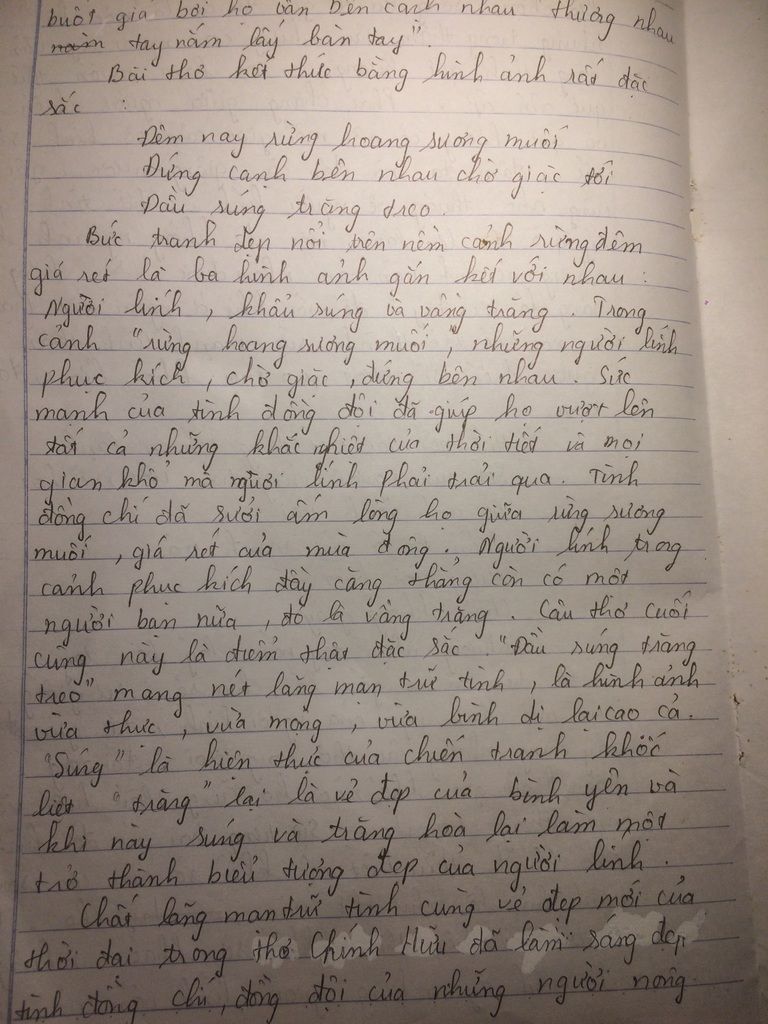 buốt giá bởi họ vẫn bên cạnh nhau "thương nhau
tay nắm lấy bàn tay".
Bài thơ kết thúc bằng hình ảnh rất đặc
sắc :
Đêm nay rừng hoang sương muối
Đứng cạnh bên nhau chờ giặc tới
Đầu súng trăng treo.
Bức tranh đẹp nổi trên nềm cảnh rừng đêm
giá rét là ba hình ảnh gắn kết với nhau :
Người lính , khẩu súng và vầng trăng . Trong
cảnh "rừng hoang sương muối", những người lính
phục kích , chờ giặc , đứng bên nhau . Sức
mạnh của tình đồng đội đã giúp họ vượt lên
tất cả những khắc nghiệt của thời tiết và mọi
gian khổ mà người lính phải trải qua . Tình
đồng chí đã sưởi ấm lòng họ giữa rừng sương
muối , giá rét của mùa đông . Người lính trong
cảnh phục kích đầy căng thẳng còn có một
người bạn nữa , đó là vầng trăng . Câu thơ cuối
cùng này là điểm thật đặc sắc . "Đầu súng trăng
treo" mang nét lãng mạn trữ tình , là hình ảnh
vừa thực , vừa mộng , vừa bình dị lại cao cả .
"Súng" là hiện thực của chiến tranh khốc
liệt "trăng" lại là vẻ đẹp của bình yên và
khi này súng và trăng hoà lại làm một
trở thành biểu tượng đẹp của người lính .
Chất lãng mạn trữ tình cùng vẻ đẹp mới của
thời đại trong thơ Chính Hữu đã làm sáng đẹp
tình đồng chí , đồng đội của những người nông